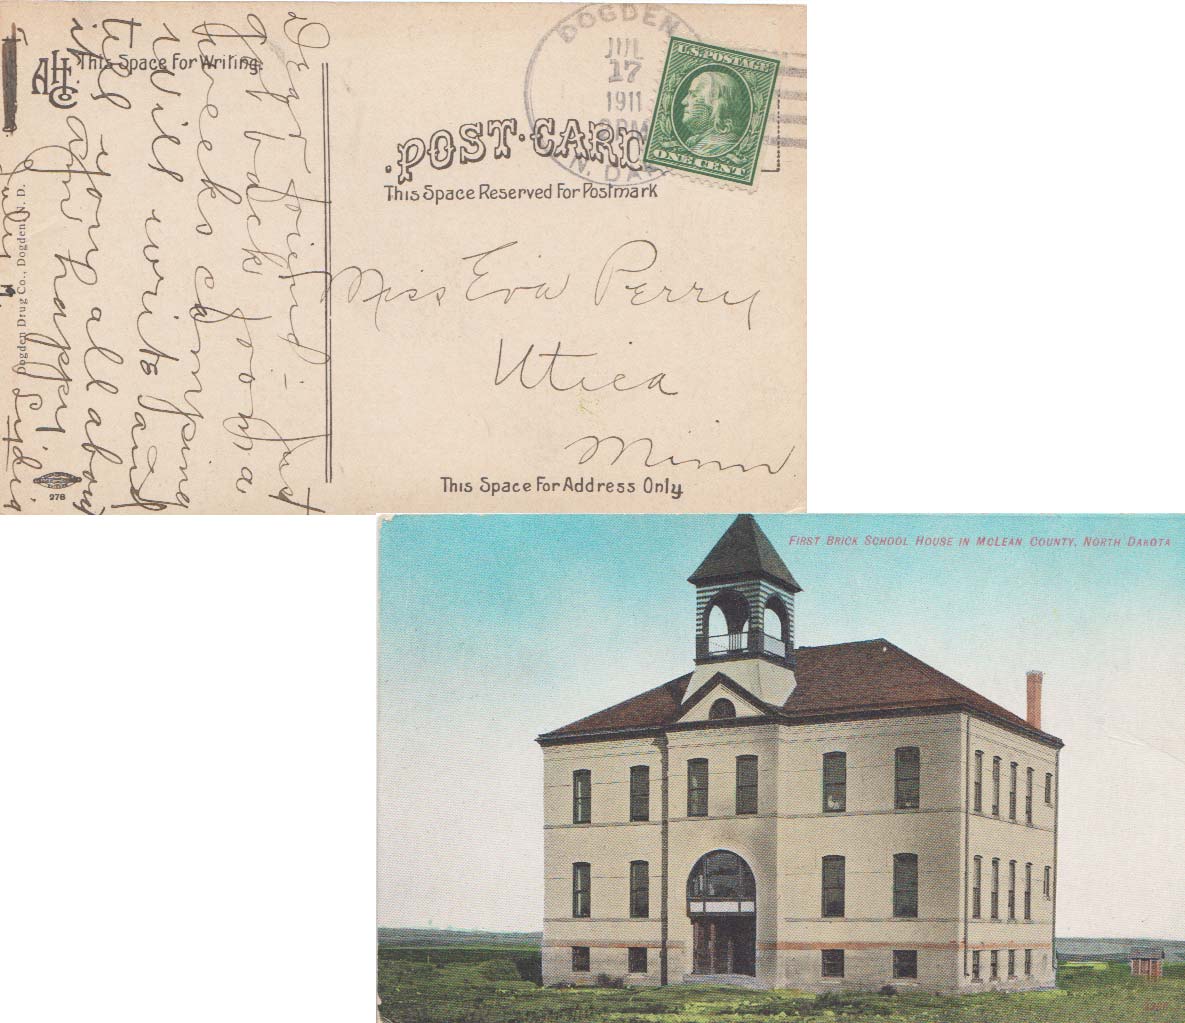 This Space For Writing.
AHCo
Dear friend - Just
got back from a
weeks camping
Will write and
tell you all about
it
am happy.
Lydia
Dogden Drug Co., Dogden, N. D.
276
DOGDEN
JUL
17
1911
N. DAK.
U.S. POSTAGE
ONE CENT
POST CARD
This Space Reserved For Postmark
Miss Eva Perry
Utica
Minn
This Space For Address Only
FIRST BRICK SCHOOL HOUSE IN MCLEAN COUNTY, NORTH DAKOTA